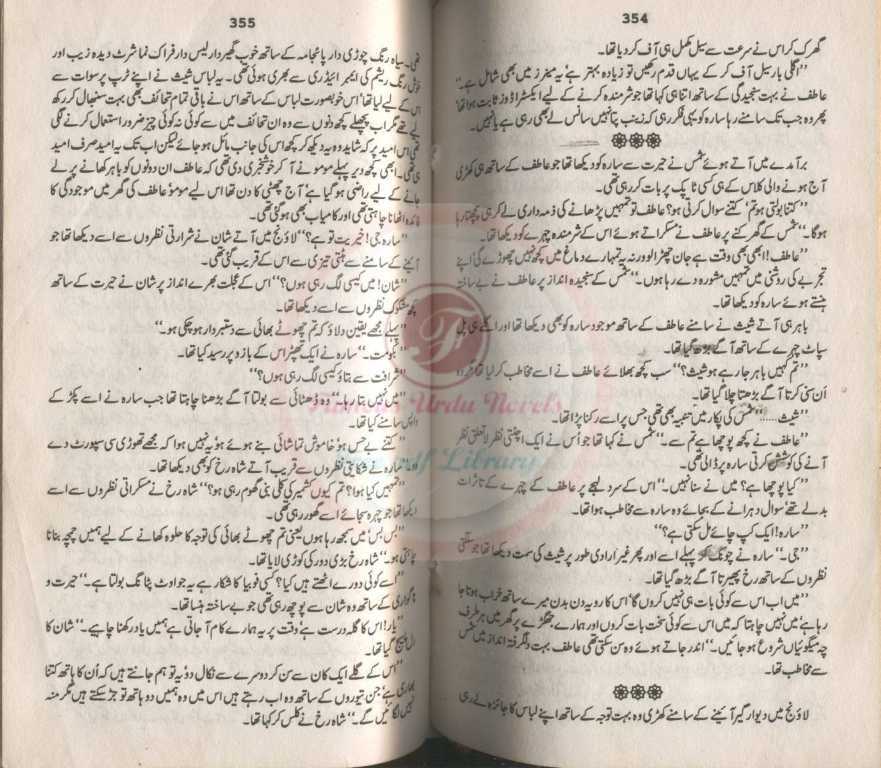 354
گھرک کر اس نے سرعت سے سیل مکمل ہی آف کر دیا تھا۔
”اگلی بار سیل آف کر کے یہاں قدم رکھیں تو زیادہ بہتر ہے‘ یہ مینرز میں بھی شامل ہے۔“
عاطف نے بہت سنجیدگی کے ساتھ اتنا ہی کہا تھا جو شرمندہ کرنے کے لیے ایکسٹرا ڈوز ثابت ہوا تھا
پھر وہ جب تک سامنے رہا سارہ کو یہی فکر رہی کہ زینب پتا نہیں سانس لے بھی رہی ہے یا نہیں۔
برآمدے میں آتے ہوئے شمس نے حیرت سے سارہ کو دیکھا تھا جو عاطف کے ساتھ ہی کھڑی
آج ہونے والی کلاس کے ہی کسی ٹاپک پر بات کر رہی تھی۔
”کتنا بولتی ہو تم‘ کتنے سوال کرتی ہو؟ عاطف تو تمہیں پڑھانے کی ذمہ داری لے کر ہی پچھتا رہا
ہوگا۔“ شمس کے گھرکنے پر عاطف نے مسکراتے ہوئے اس کے شرمندہ چہرے کو دیکھا تھا۔
”عاطف! ابھی بھی وقت ہے جان چھڑا لو ورنہ یہ تمہارے دماغ میں کچھ نہیں چھوڑے گی اپنے
تجربے کی روشنی میں تمہیں مشورہ دے رہا ہوں۔“ شمس کے سنجیدہ انداز پر عاطف نے بے ساختہ
ہنستے ہوئے سارہ کو دیکھا تھا۔
باہر ہی آتے شیث نے سامنے عاطف کے ساتھ موجود سارہ کو بھی دیکھا تھا اور اگلے ہی پل
سپاٹ چہرے کے ساتھ آگے بڑھ گیا تھا۔
”تم کہیں باہر جا رہے ہو شیث؟“ سب کچھ بھلائے عاطف نے اسے مخاطب کر لیا تھا مگر وہ
اَن سنی کرتا آگے بڑھتا چلا گیا تھا۔
”شیث......“ شمس کی پکار میں تنبیہ بھی تھی جس پر اسے رکنا پڑا تھا۔
”عاطف نے کچھ پوچھا ہے تم سے۔“ شمس نے کہا تھا جو اُس نے ایک اچٹتی نظر لا تعلق نظر
آنے کی کوشش کرتی سارہ پر ڈالی تھی۔
”کیا پوچھا ہے؟ میں نے سنا نہیں۔“ اس کے سرد لہجے پر عاطف کے چہرے کے تاثرات
بدلے تھے‘ سوال دہرانے کے بجائے وہ سارہ سے مخاطب ہوا تھا۔
”سارہ! ایک کپ چائے مل سکتی ہے؟“
”جی۔“ سارہ نے چونک کر پہلے اسے اور پھر غیر ارادی طور پر شیث کی سمت دیکھا تھا جو سلگتی
نظروں کے ساتھ رخ پھیرتا آگے بڑھ گیا تھا۔
”میں اب اس سے کوئی بات ہی نہیں کروں گا‘ اس کا رویہ دن بدن میرے ساتھ خراب ہوتا جا
رہا ہے‘ میں نہیں چاہتا کہ میں اس سے کوئی سخت بات کروں اور ہمارے جھگڑے پر گھر میں ہر طرف
چہ میگوئیاں شروع ہو جائیں۔“ اندر جاتے ہوئے وہ سن سکتی تھی عاطف بہت دلگرفتہ انداز میں شمس
سے مخاطب تھا۔
لاؤنج میں دیوار گیر آئینے کے سامنے کھڑی وہ بہت توجہ کے ساتھ اپنے لباس کا جائزہ لے رہی
355
تھی۔ سیاہ رنگ چوڑی دار پائجامہ کے ساتھ خوب گھیر دار لیس دار فراک نما شرٹ دیدہ زیب اور
خوش رنگ ریشم کی ایمبرائیڈری سے بھری ہوئی تھی۔ یہ لباس شیث نے اپنے ٹرپ پر سوات سے
اس کے لیے لیا تھا‘ اس خوبصورت لباس کے ساتھ اس نے باقی تمام تحائف بھی بہت سنبھال کر رکھ
لیے تھے مگر اب پچھلے کچھ دنوں سے وہ ان تحائف میں سے کوئی نہ کوئی چیز ضرور استعمال کرنے لگی
تھی اس امید پر کہ شاید وہ یہ دیکھ کر کچھ اس کی جانب مائل ہو جائے لیکن اب تک یہ امید صرف امید
ہی تھی۔ ابھی کچھ دیر پہلے مومو نے آ کر خوشخبری دی تھی کہ عاطف ان دونوں کو باہر کھانے پر لے
جانے کے لیے راضی ہو گیا ہے‘ آج چھٹی کا دن تھا اس لیے مومو‘ عاطف کی گھر میں موجودگی کا
فائدہ اٹھانا چاہتی تھی اور کامیاب بھی ہو گئی تھی۔
”سارہ جی! خیریت تو ہے؟“ لاؤنج میں آتے شان نے شرارتی نظروں سے اسے دیکھا تھا جو
آئینے کے سامنے سے ہٹتی تیزی سے اس کے قریب گئی تھی۔
”شان! میں کیسی لگ رہی ہوں؟“ اس کے عجلت بھرے انداز پر شان نے حیرت کے ساتھ
کچھ مشکوک نظروں سے اسے دیکھا تھا۔
”پہلے مجھے یقین دلاؤ کہ تم چھوٹے بھائی سے دستبردار ہو چکی ہو۔“
”بکومت۔“ سارہ نے ایک تھپڑ اس کے بازو پر رسید کیا تھا۔
”شرافت سے بتاؤ کیسی لگ رہی ہوں؟“
”میں نہیں بتا رہا۔“ وہ ڈھٹائی سے بولتا آگے بڑھنا چاہتا تھا جب سارہ نے اسے پکڑ کے
واپس سامنے کیا تھا۔
”کتنے بے حس ہو‘ خاموش تماشائی بنے ہوئے ہو‘ یہ نہیں ہوا کہ مجھے تھوڑی سی سپورٹ دے
دو۔“ سارہ نے شکایتی نظروں سے قریب آتے شاہ رخ کو بھی دیکھا تھا۔
”تمہیں کیا ہوا؟ تم کیوں کشمیر کی کلی بنی گھوم رہی ہو؟“ شاہ رخ نے مسکراتی نظروں سے اسے
دیکھا تھا جو چہرہ سجائے اسے گھور رہی تھی۔
”بس بس‘ میں سمجھ رہا ہوں یعنی تم چھوٹے بھائی کی توجہ کا حلوہ کھانے کے لیے ہمیں چمچہ بنانا
چاہتی ہو۔“ شاہ رخ بڑی دور کی کوڑی لایا تھا۔
”اسے کوئی دورے اٹھتے ہیں کیا؟ کسی فوبیا کا شکار ہے یہ جو اوٹ پٹانگ بولتا ہے۔“ حیرت و
ناگواری کے ساتھ وہ شان سے پوچھ رہی تھی جو بے ساختہ ہنسا تھا۔
”یار! اس کا گلہ درست ہے‘ وقت پر یہ ہمارے کام آتی ہے ہمیں یاد رکھنا چاہیے۔“ شان کا
دل پسیج گیا تھا۔
”اس کے گلے ایک کان سے سن کر دوسرے سے نکال دو‘ یہ تو ہم جانتے ہیں کہ اُن کا ہاتھ کتنا
بھاری ہے‘ جن تیوروں کے ساتھ وہ اب رہتے ہیں اس میں وہ ہمیں دو ہاتھ تو جڑ سکتے ہیں مگر منہ
نہیں لگائیں گے۔“ شاہ رخ نے کلس کر کہا تھا۔
Famous Urdu Novels
Library